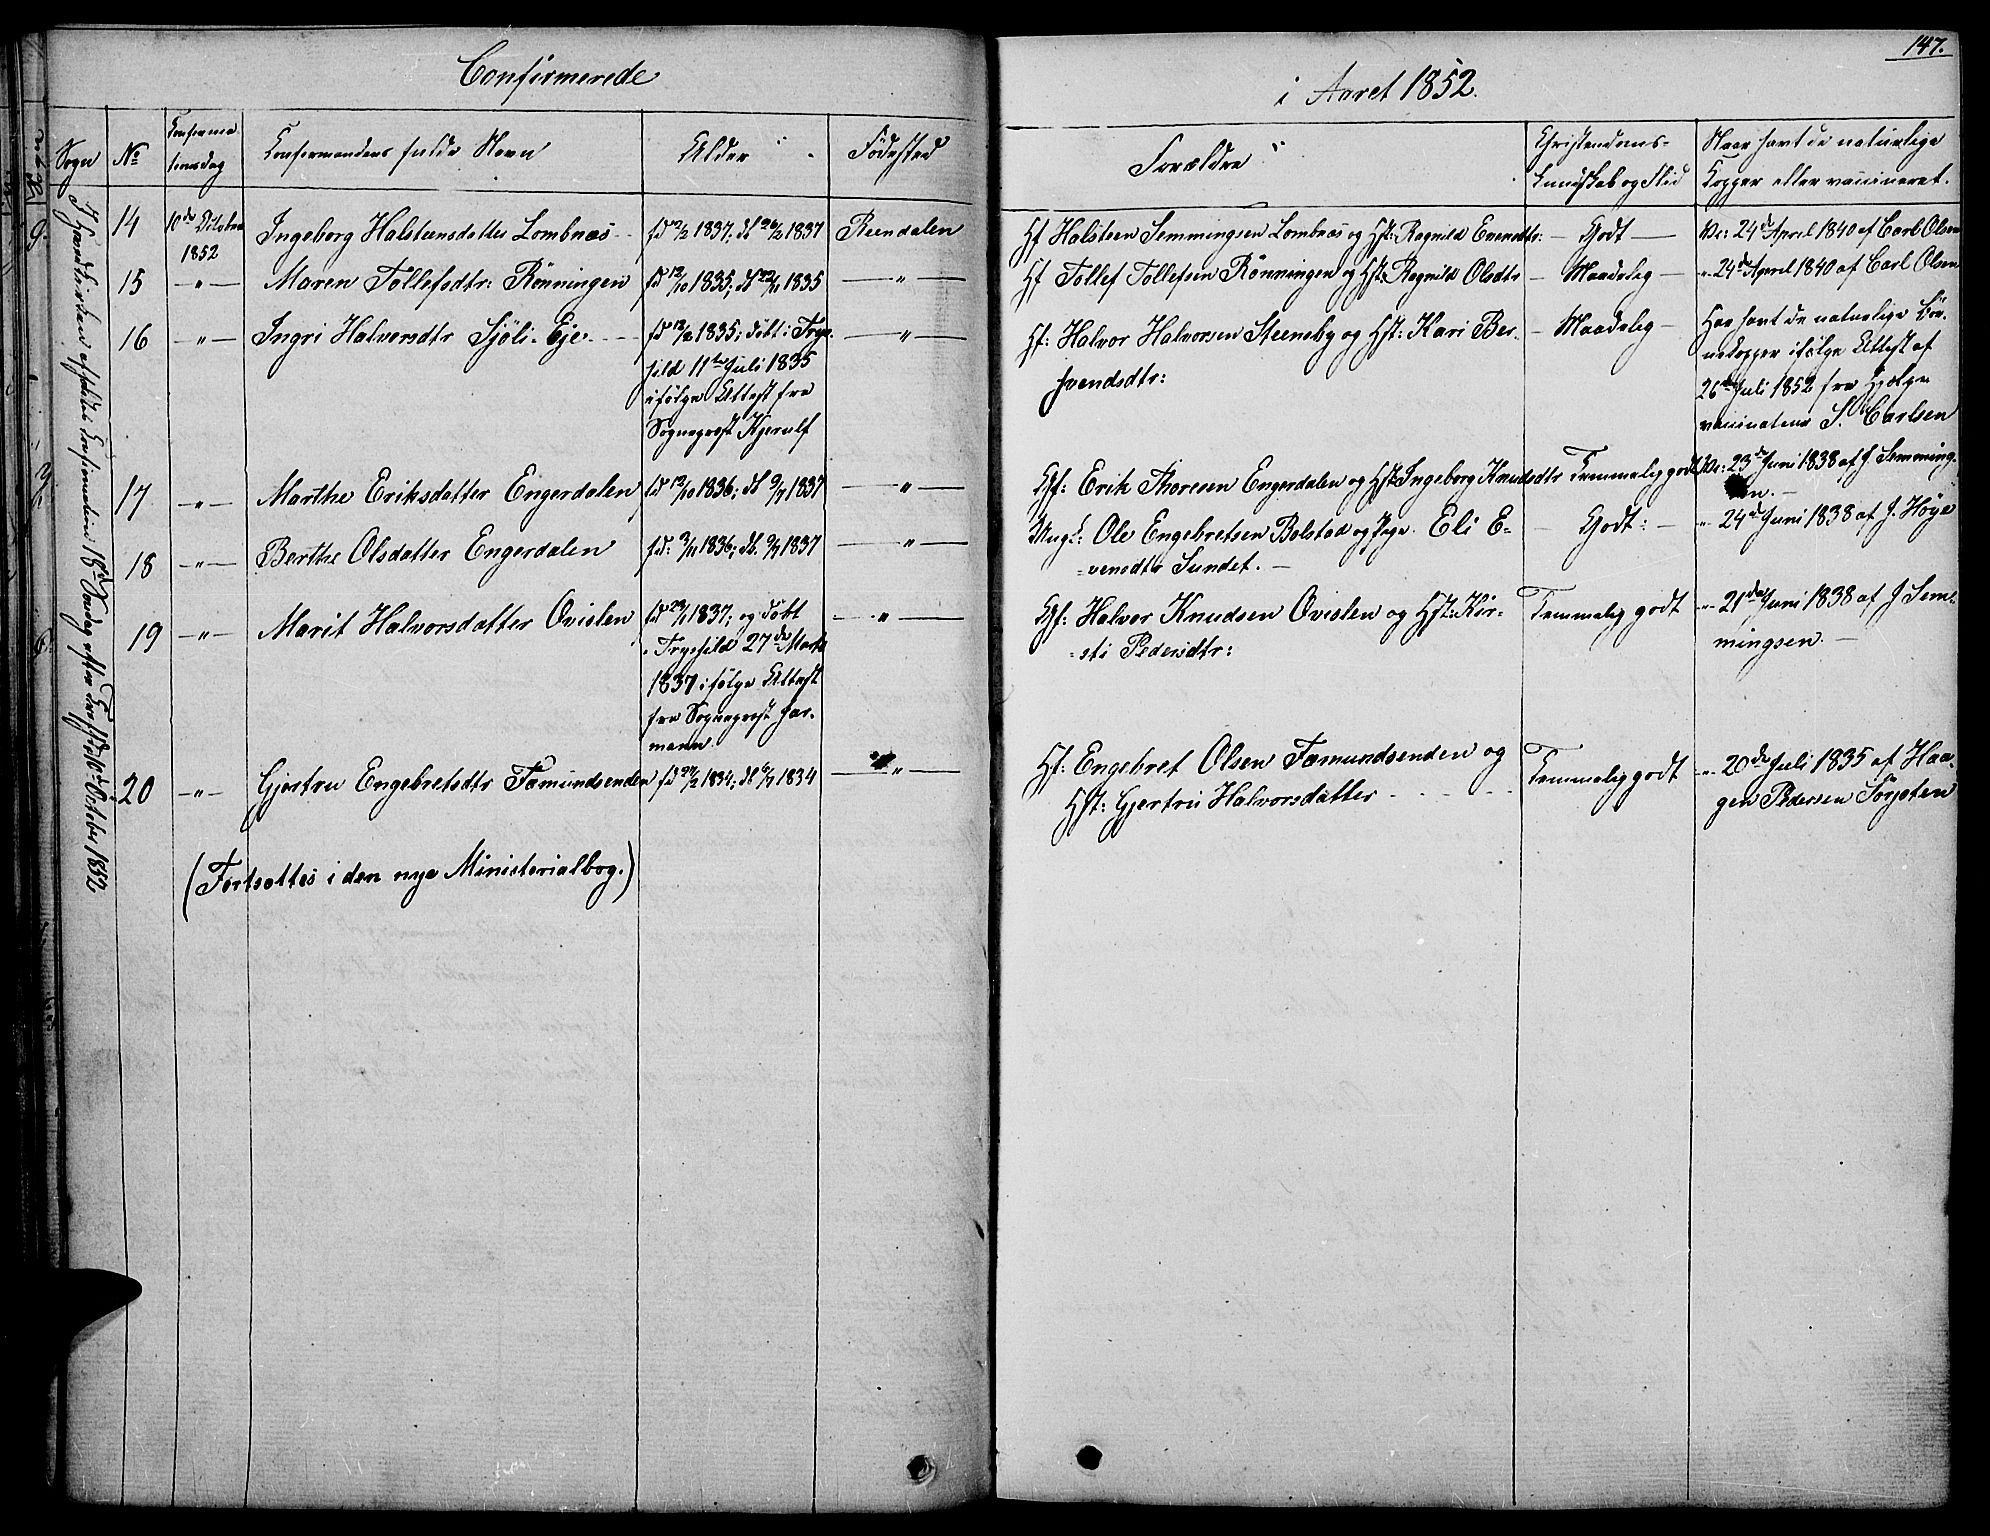 Confirmerede
i Aaret 1852.
147.
Sogn
No
Confirmationsdag
Konfirmandens fulde Navn
Alder
Fødested
Forældre
Christendoms-
kundskab og Flid
Naar havt de naturlige
Kopper eller vaccineret.
10de October 1852
14 10de October 1852 Ingeborg Halsteensdatter Lombnæs fd 12/2 1837; db 26/2 1837 Reendalen Hf Halsteen Semmingsen Lombnæs og Hst: Ragnild Evensdtr: Godt Vc: 24de April 1840 af Carl Olsen
15 -"- Maren Tollefsdtr: Rønningen fd 12/10 1835; db 22/11 1835 -"- Hf Tollef Tollefsen Rønningen og Hst: Ragnild Olsdtr Maadelig " 24de April 1840 af Carl Olsen
16 -"- Ingri Halversdtr Sjöli-Eje 1835; døbt i Try-
sild 11te Juli 1835
ifølge Attest fra
Sognepræst Kjerulf
-"- Hf: Halvor Halvorsen Steeneby og Hst: Kari Ber-
svendsdtr:
Maadelig
Har havt de naturlige Bør-
nekopper ifølge Attest af
26de Juli 1852 fra Hjælpe-
vaccinateur S. Carlsen
17 -"- Marthe Eriksdatter Engerdalen fd 12/10 1836; db 9/7 1837 -"- Gf: Erik Thoresen Engerdalen og Hst: Ingeborg Knudsdtr Temmelig godt Vc: 23de Juni 1838 af J. Semming-
sen.
18 -"- Berthe Olsdatter Engerdalen fd: 3/11 1836; db. 9/7 1837 -"- Ungk: Ole Engebretsen Bolstad og Pige Eli E-
vensdtr Sundet. Godt: " 24de Juni 1838 af J. Høye
19 -"- Marit Halvorsdatter Qvisten fd 23/1 1837; og døbt
i Trysild 27de Marts
1837 ifølge Attest
fra Sognepræst Har-
mann.
-"- Gf: Halvor Knudsen Qvisten og Hst: Kir-
sti Pedersdtr: Temmelig godt " 21de Juni 1838 af J Sem-
mingsen.
20 -"- Gjertru Engebretsdtr Famundsenden 1834; 1834 -"- Hf: Engebret Olsen Famundsenden og
Hst: Gjertru Halvorsdatter Temmelig godt " 20de Juli 1835 af Haa-
gen Pedersen Sorjoten
(Fortsættes i den nye Ministerialbog.)